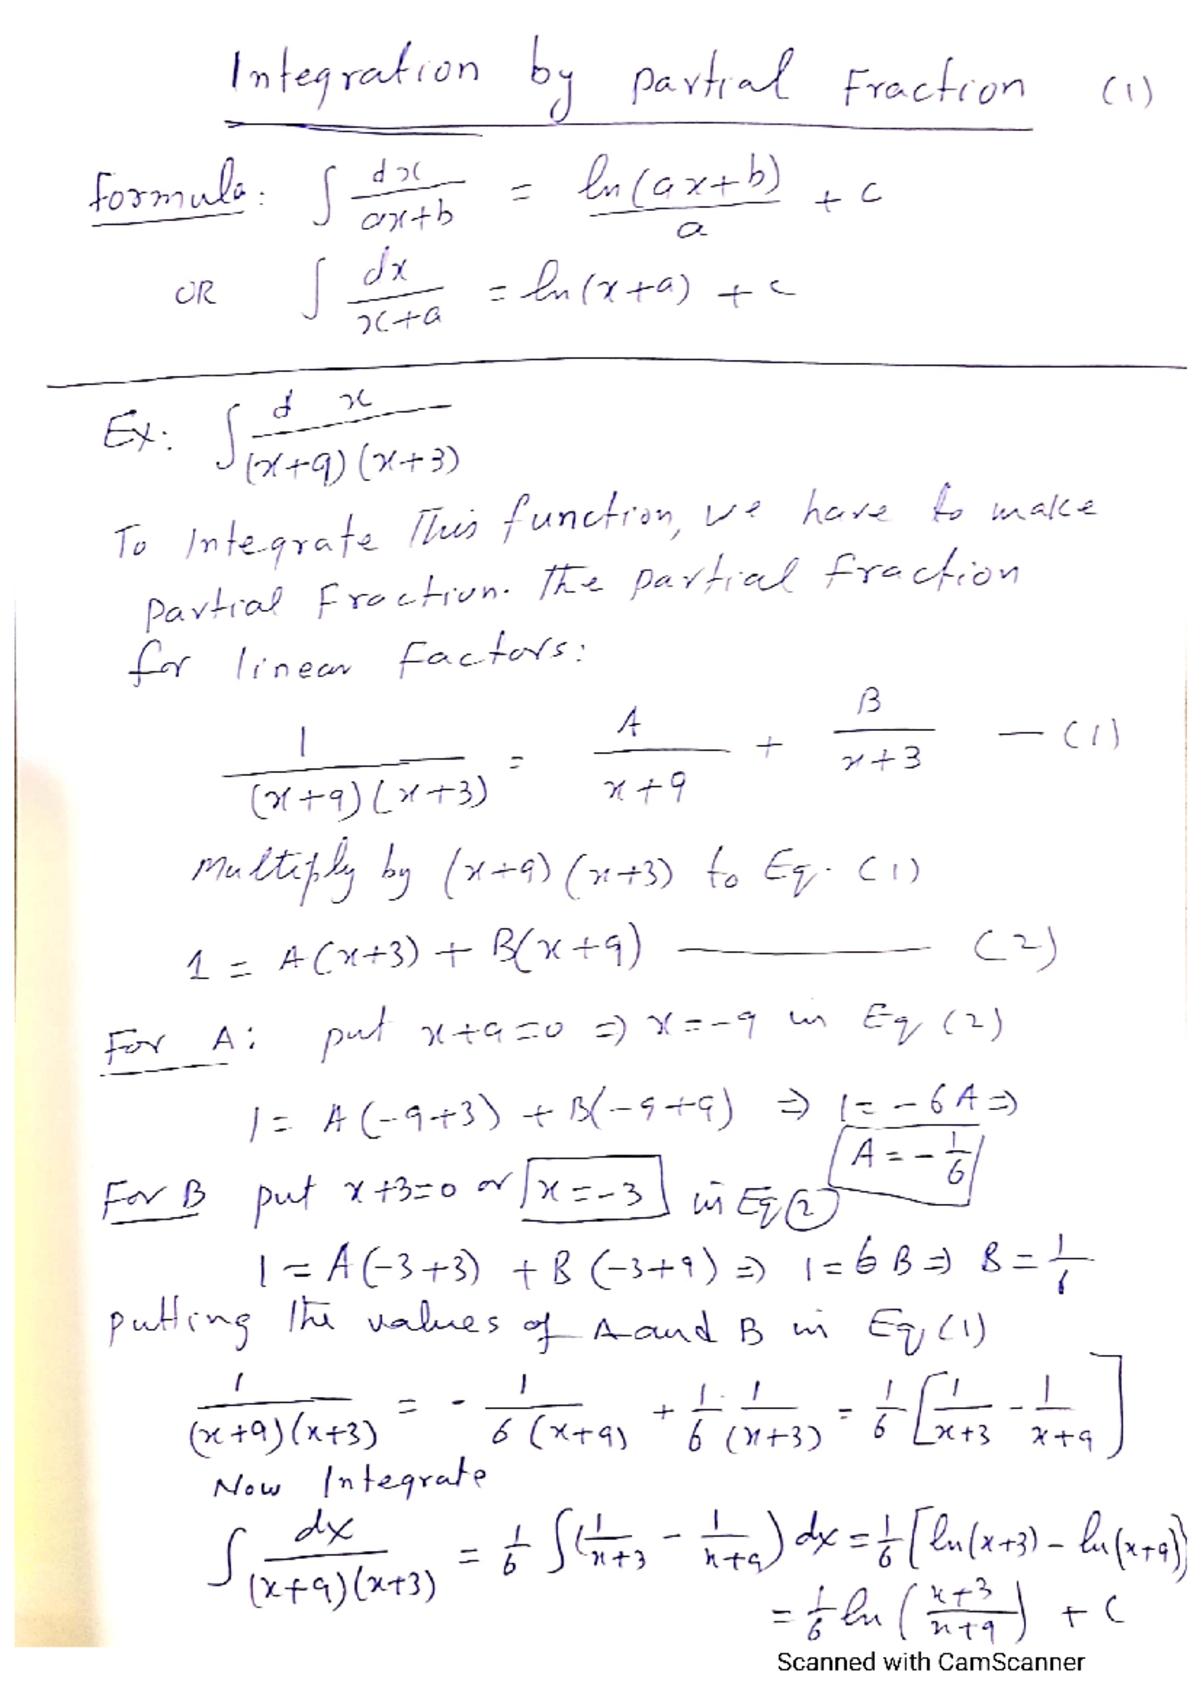 Integration by Partial Fraction (1)
Formula: ∫ dx/(ax+b) = ln(ax+b)/a + c
OR ∫ dx/(x+a) = ln(x+a) + c
Ex: ∫ dx/((x+9)(x+3))
To Integrate This function, we have to make
Partial Fraction. The partial fraction
for linear Factors:
1/((x+9)(x+3)) = A/(x+9) + B/(x+3) — (1)
Multiply by (x+9)(x+3) to Eq. (1)
1 = A(x+3) + B(x+9) — (2)
For A: put x+9=0 => x=-9 in Eq (2)
1 = A(-9+3) + B(-9+9) => 1 = -6A =>
A = -1/6
For B put x+3=0 or x=-3 in Eq (2)
1 = A(-3+3) + B(-3+9) => 1=6B => B=1/6
putting The values of A and B in Eq (1)
1/((x+9)(x+3)) = -1/(6(x+9)) + 1/6 · 1/(x+3) = 1/6 [1/(x+3) - 1/(x+9)]
Now Integrate
∫ dx/((x+9)(x+3)) = 1/6 ∫(1/(x+3) - 1/(x+9)) dx = 1/6 [ln(x+3) - ln(x+9)]
= 1/6 ln((x+3)/(x+9)) + C
Scanned with CamScanner